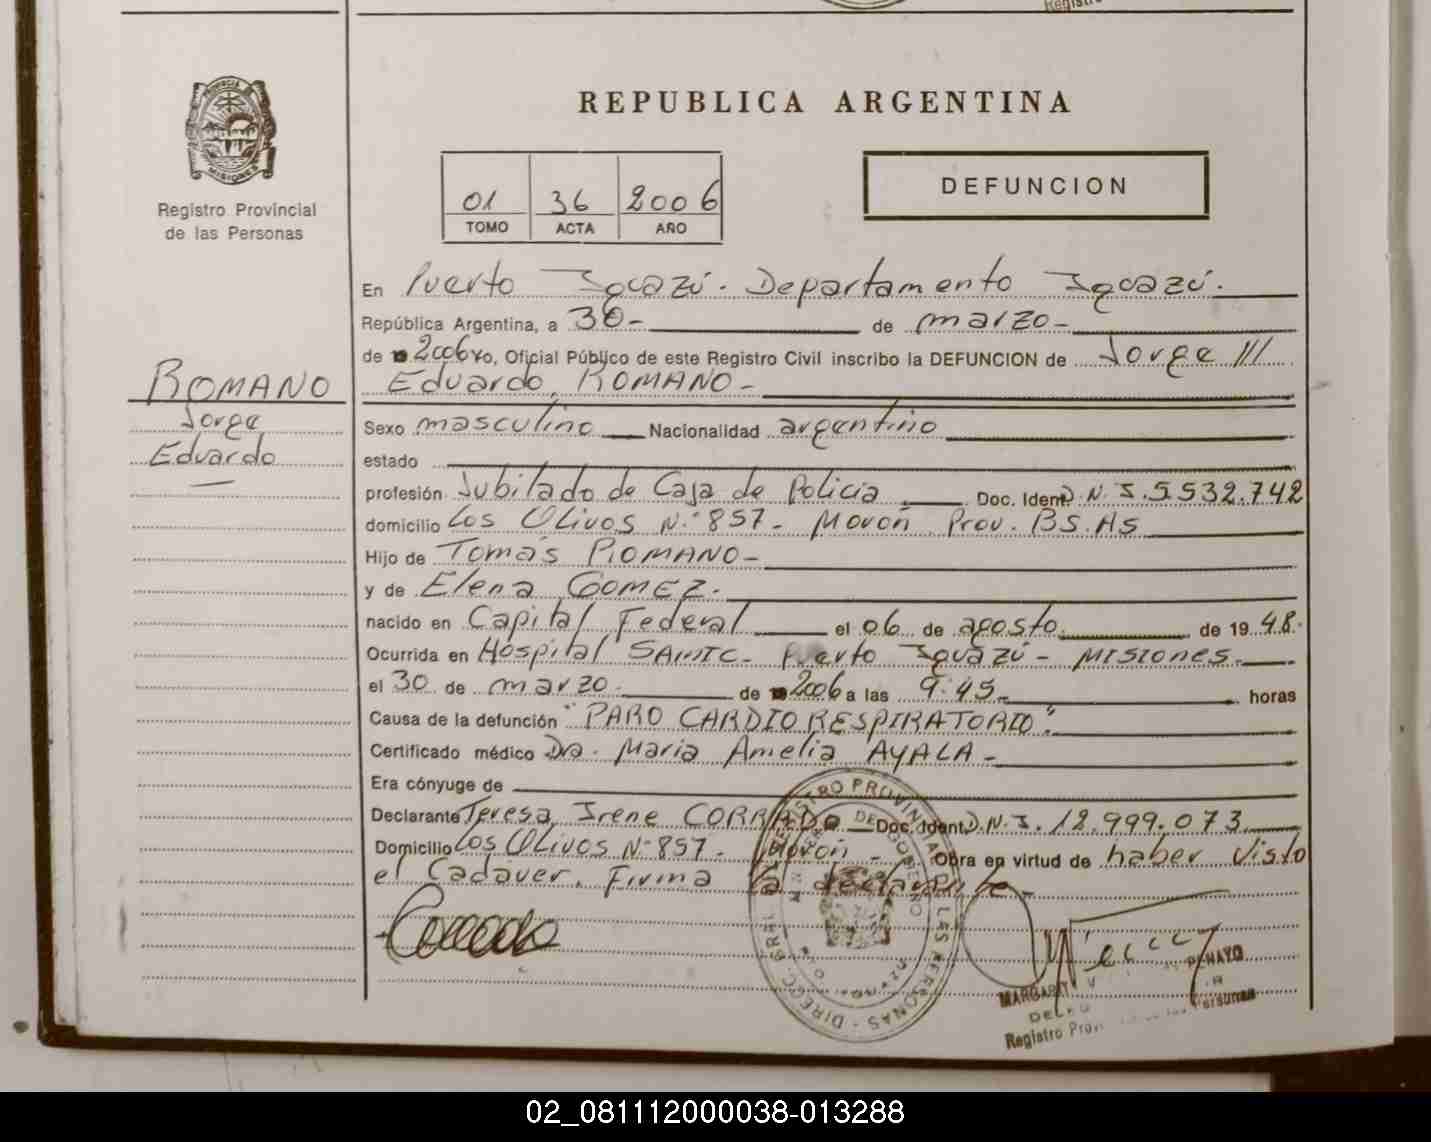 REPUBLICA ARGENTINA
PROVINCIA DE
MISIONES
Registro Provincial
de las Personas
01 36 2006
TOMO ACTA AÑO
DEFUNCION
En Puerto Iguazú. Departamento Iguazú.
República Argentina, a 30- de marzo-
de 2006 Yo, Oficial Público de este Registro Civil inscribo la DEFUNCION de Jorge ///
Eduardo, ROMANO-
ROMANO
Jorge
Eduardo
Sexo masculino Nacionalidad argentino
estado
profesión Jubilado de Caja de Policia Doc. Ident. D.N.I. 5.532.742
domicilio Los Olivos N.º 857- Morón Prov. BS.As
Hijo de Tomás ROMANO-
y de Elena GOMEZ.
nacido en Capital Federal el 06 de agosto de 1948.
Ocurrida en Hospital SAMIC- Puerto Iguazú - MISIONES.
el 30 de marzo. de 2006 a las 9:45 horas
Causa de la defunción "PARO CARDIORESPIRATORIO".
Certificado médico Dra. Maria Amelia AYALA-
Era cónyuge de
Declarante Teresa Irene CORRADO Doc. Ident. D.N.I. 12.999.073
Domicilio Los Olivos Nº 857- Morón - Obra en virtud de haber visto
el Cadaver. Firma la declarante-
Corrado
DIRECC. GRAL. REGISTRO PROVINCIAL DE LAS PERSONAS
DE GOBIERNO
MARGARIT PENAYO
Registro Prov de las Personas
02_081112000038-013288